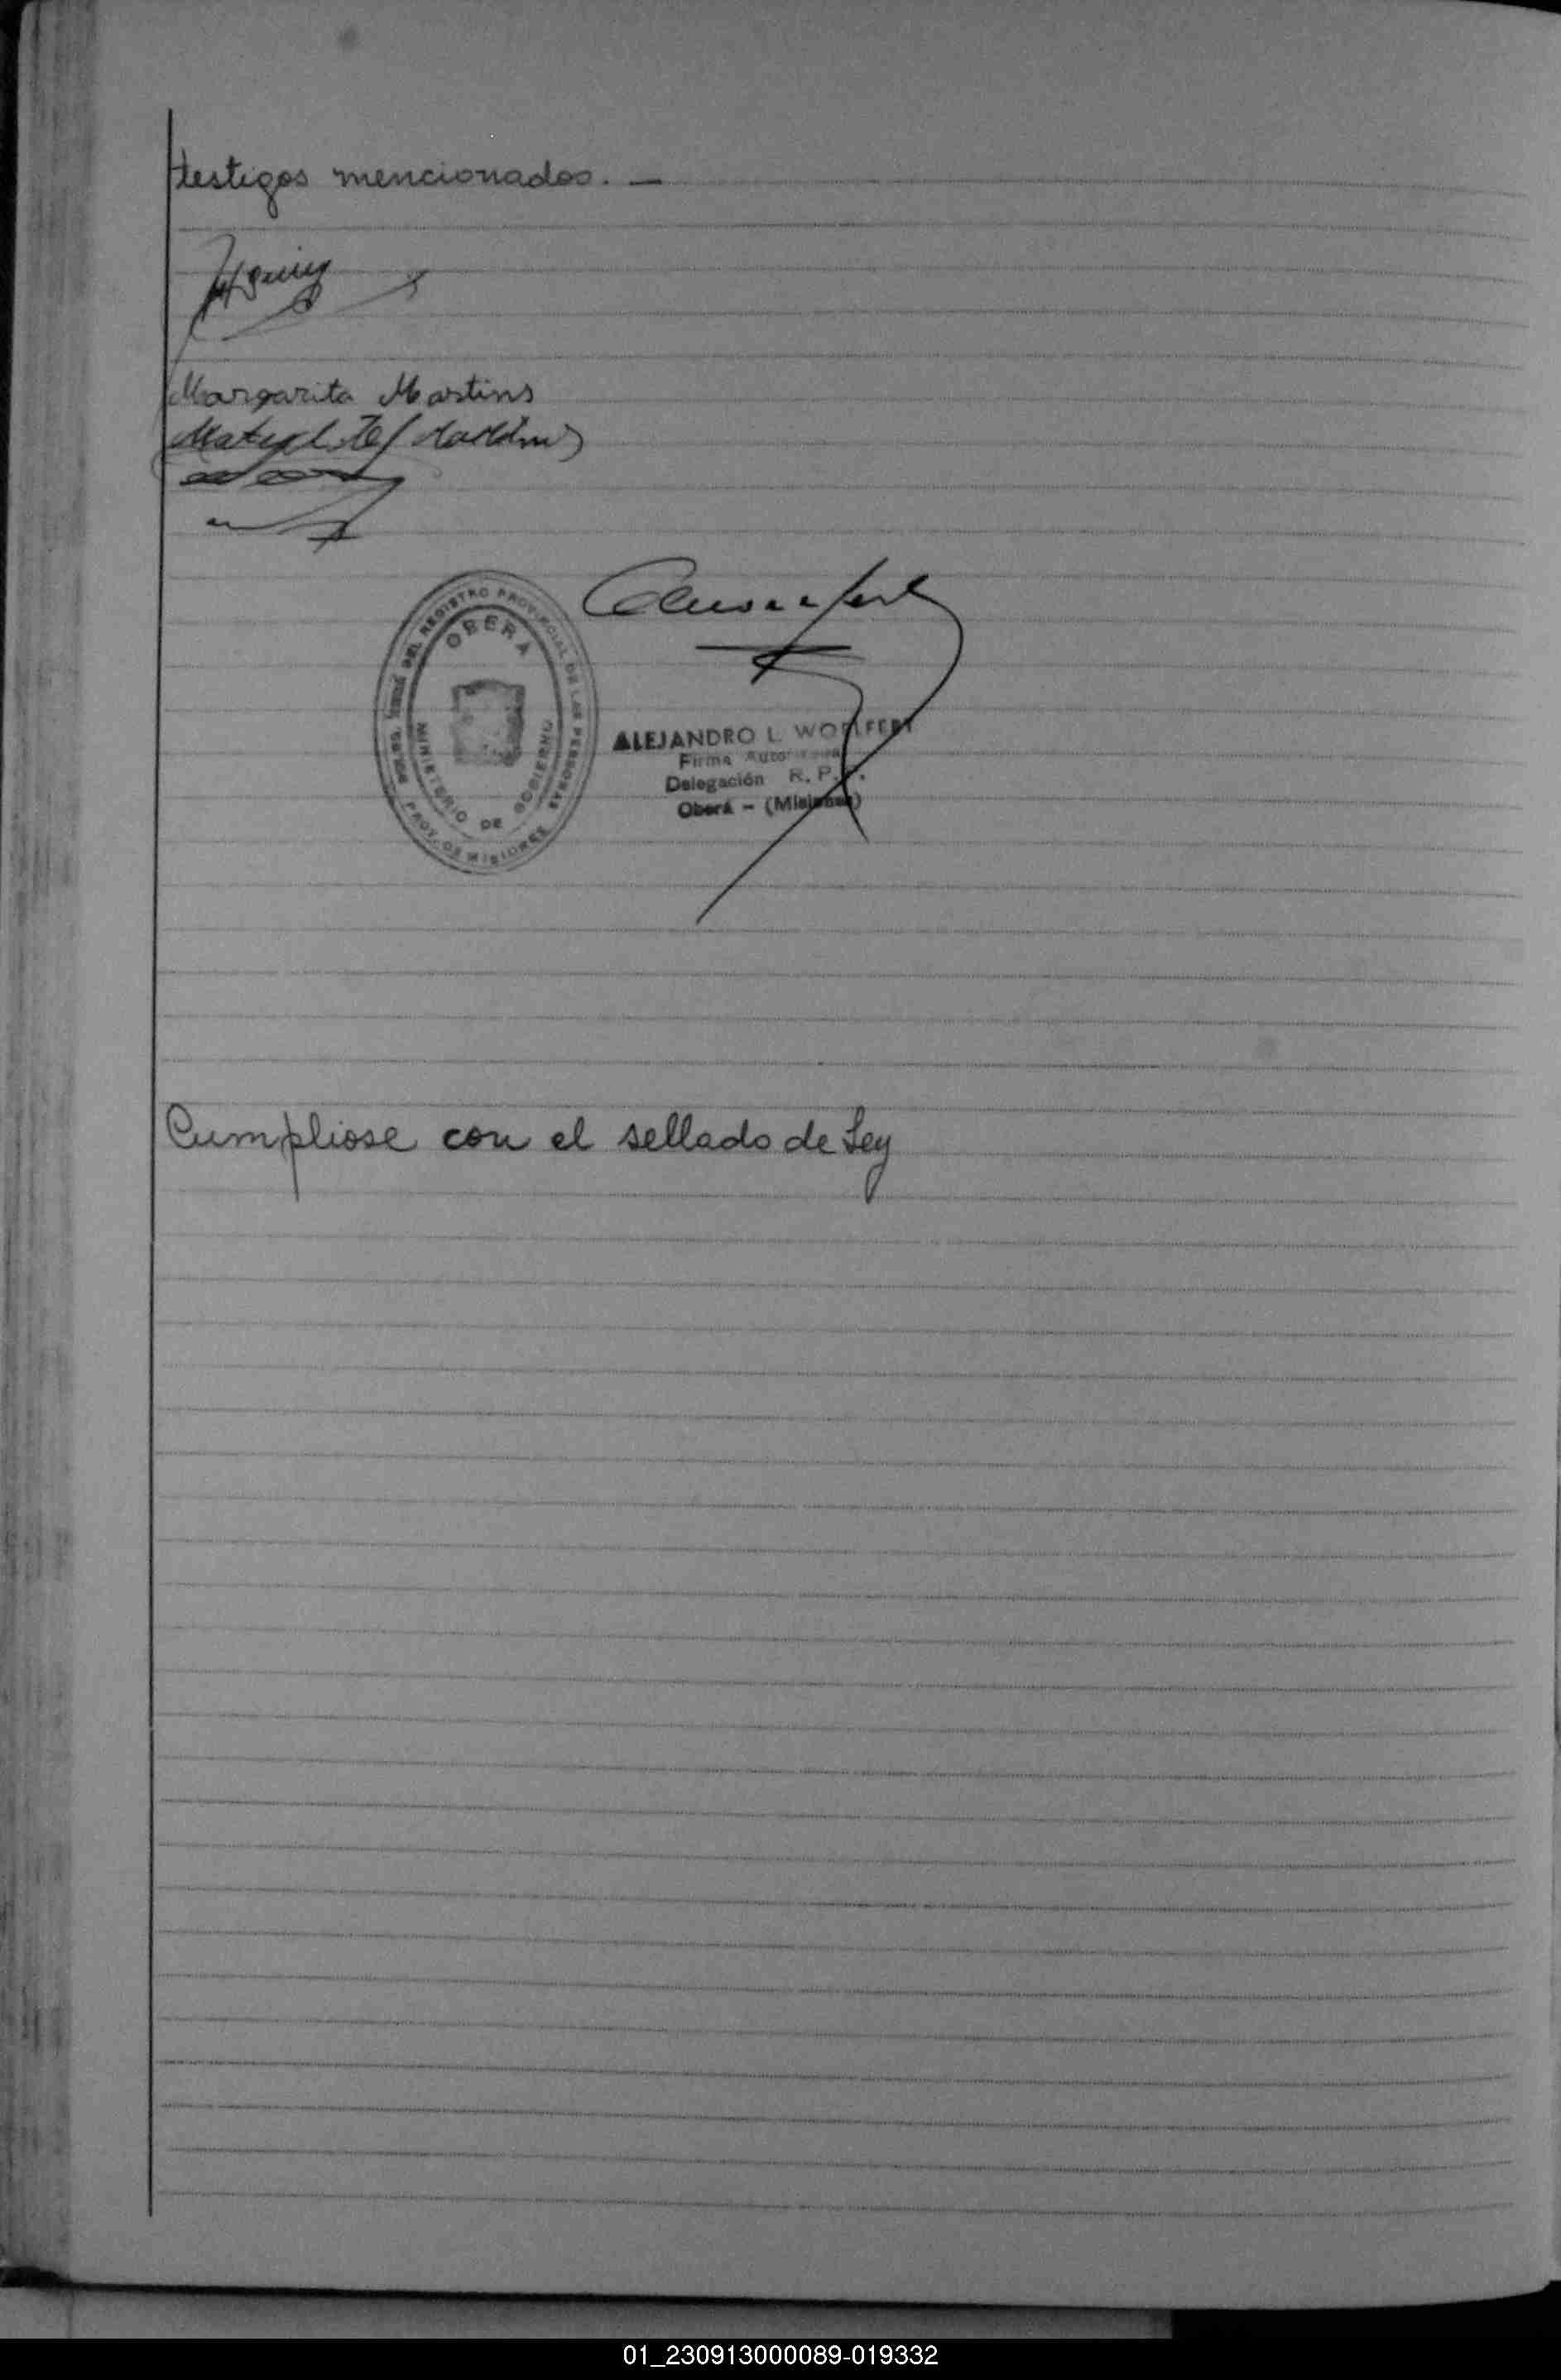 testigos mencionados. —
Margarita Martins
DEL REGISTRO PROVINCIAL DE LAS PERSONAS
OBERA
MINISTERIO DE GOBIERNO
PROV. DE MISIONES
ALEJANDRO L. WOLFERT
Firma Autorizada
Delegación R. P. P.
Oberá - (Misiones)
Cumpliose con el sellado de Ley
01_230913000089-019332